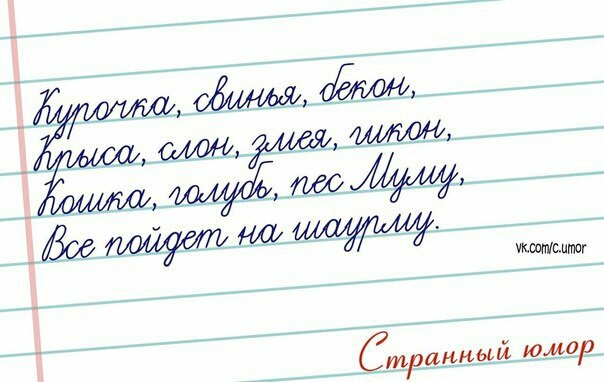 Курочка, свинья, бекон,
Крыса, слон, змея, гикон,
Кошка, голубь, пес Муму,
Все пойдет на шаурму.
vk.com/c.umor
Странный юмор